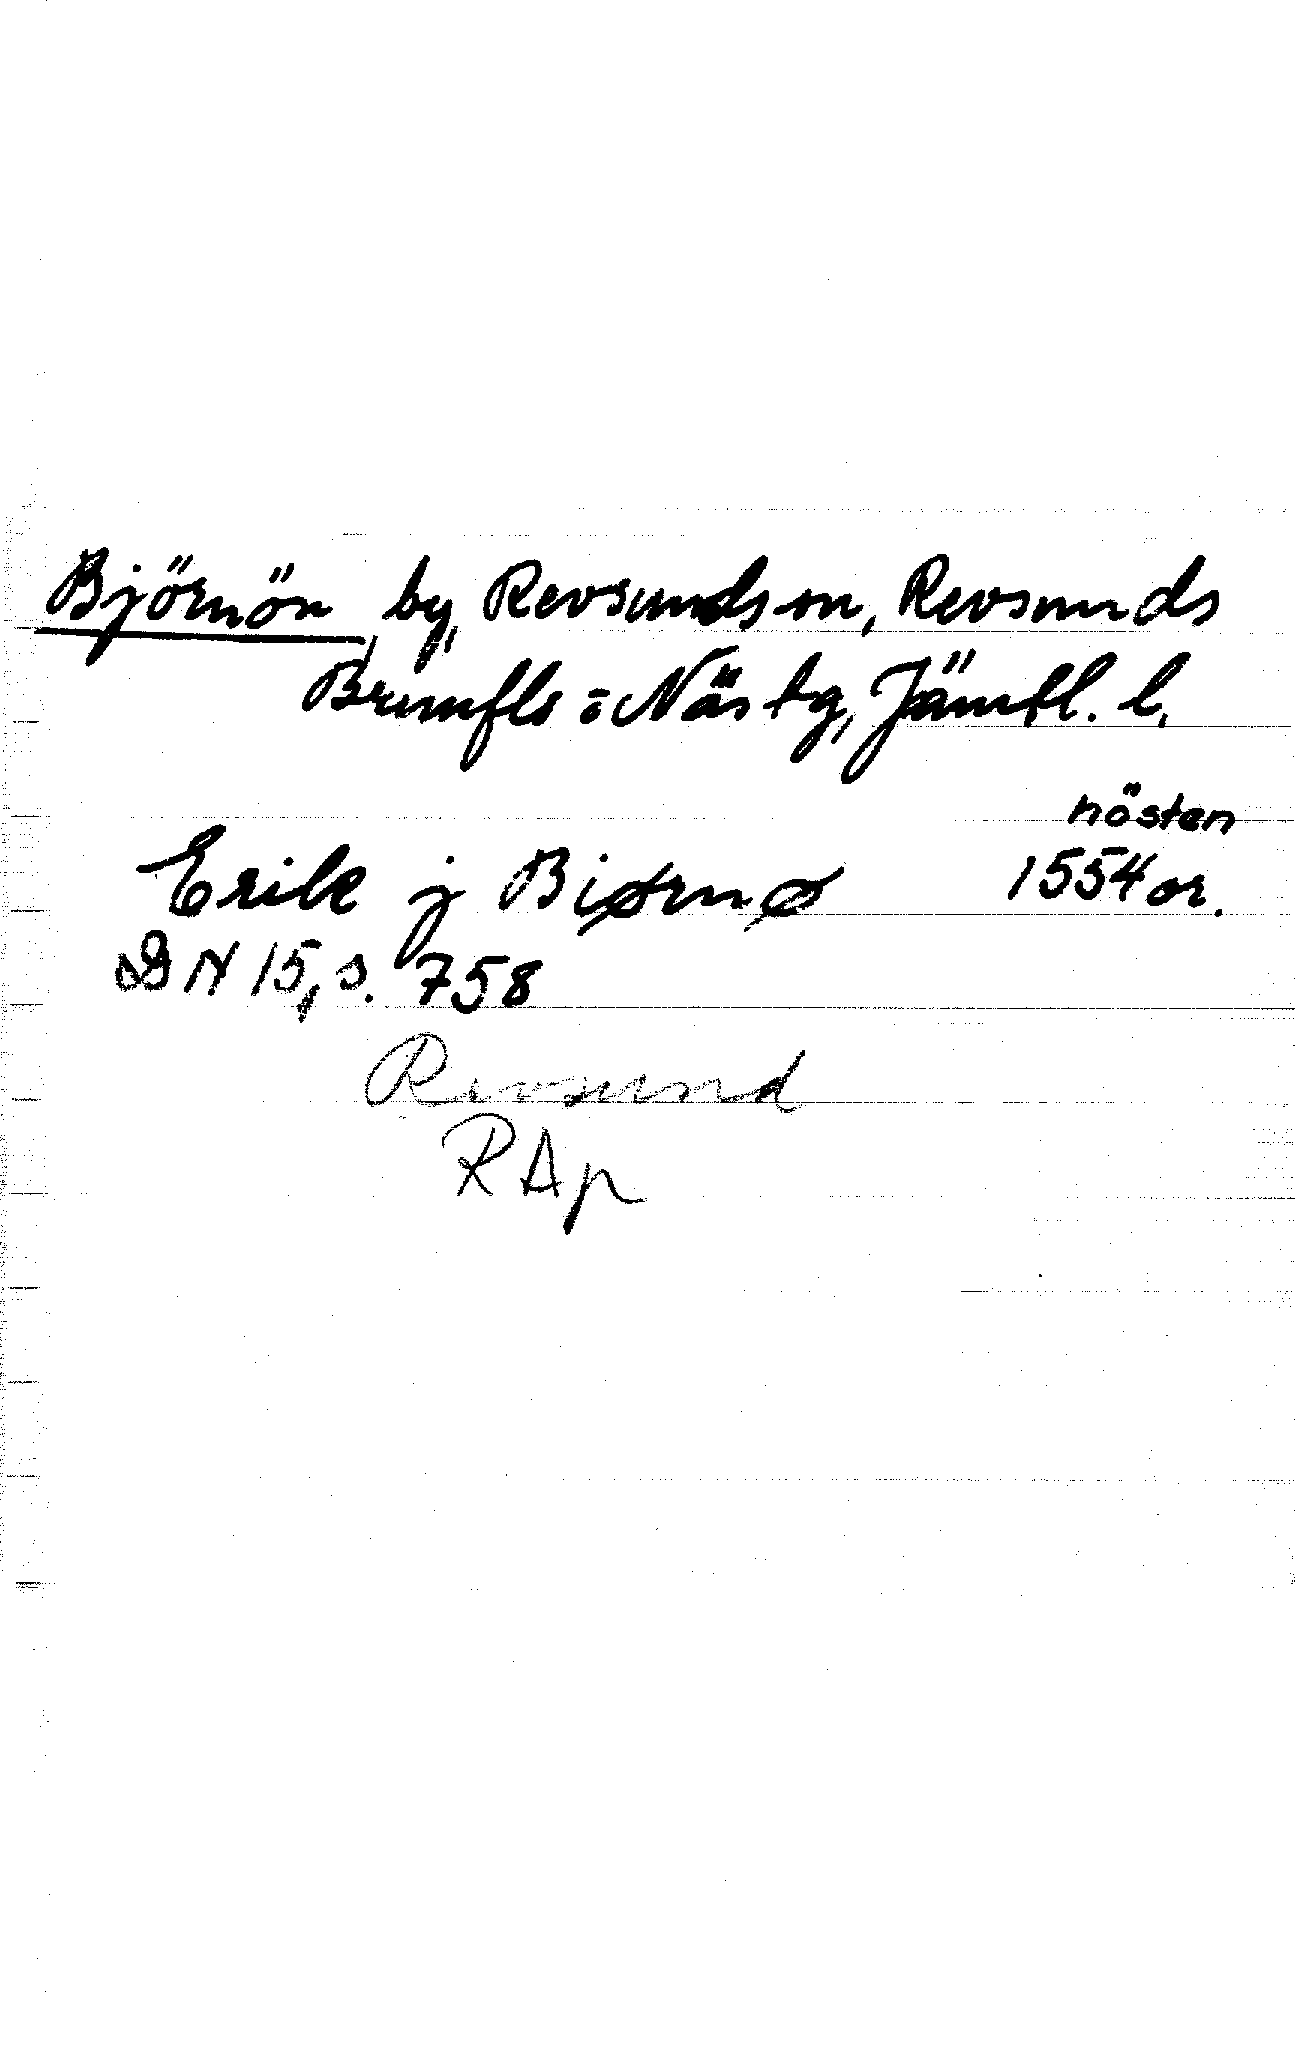 Björnön, by, Revsunds sn, Revsunds
Brunflo o Näs tg, Jämtl. l.
hösten
Erik j Biørnø 1554 or.
DN 15, s. 758
Revsund
RAp